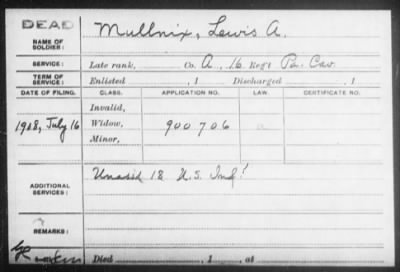 DEAD
NAME OF SOLDIER: Mullnix, Lewis A.
SERVICE: Late rank, Co. A, 16 Reg't Pa. Cav.
TERM OF SERVICE: Enlisted , 1 Discharged , 1
DATE OF FILING. CLASS. APPLICATION NO. LAW. CERTIFICATE NO.
Invalid,
1918, July 16 Widow, 900706
Minor,
ADDITIONAL SERVICES: Unasid 18 U.S. Inf!
REMARKS:
Died , 1 , at